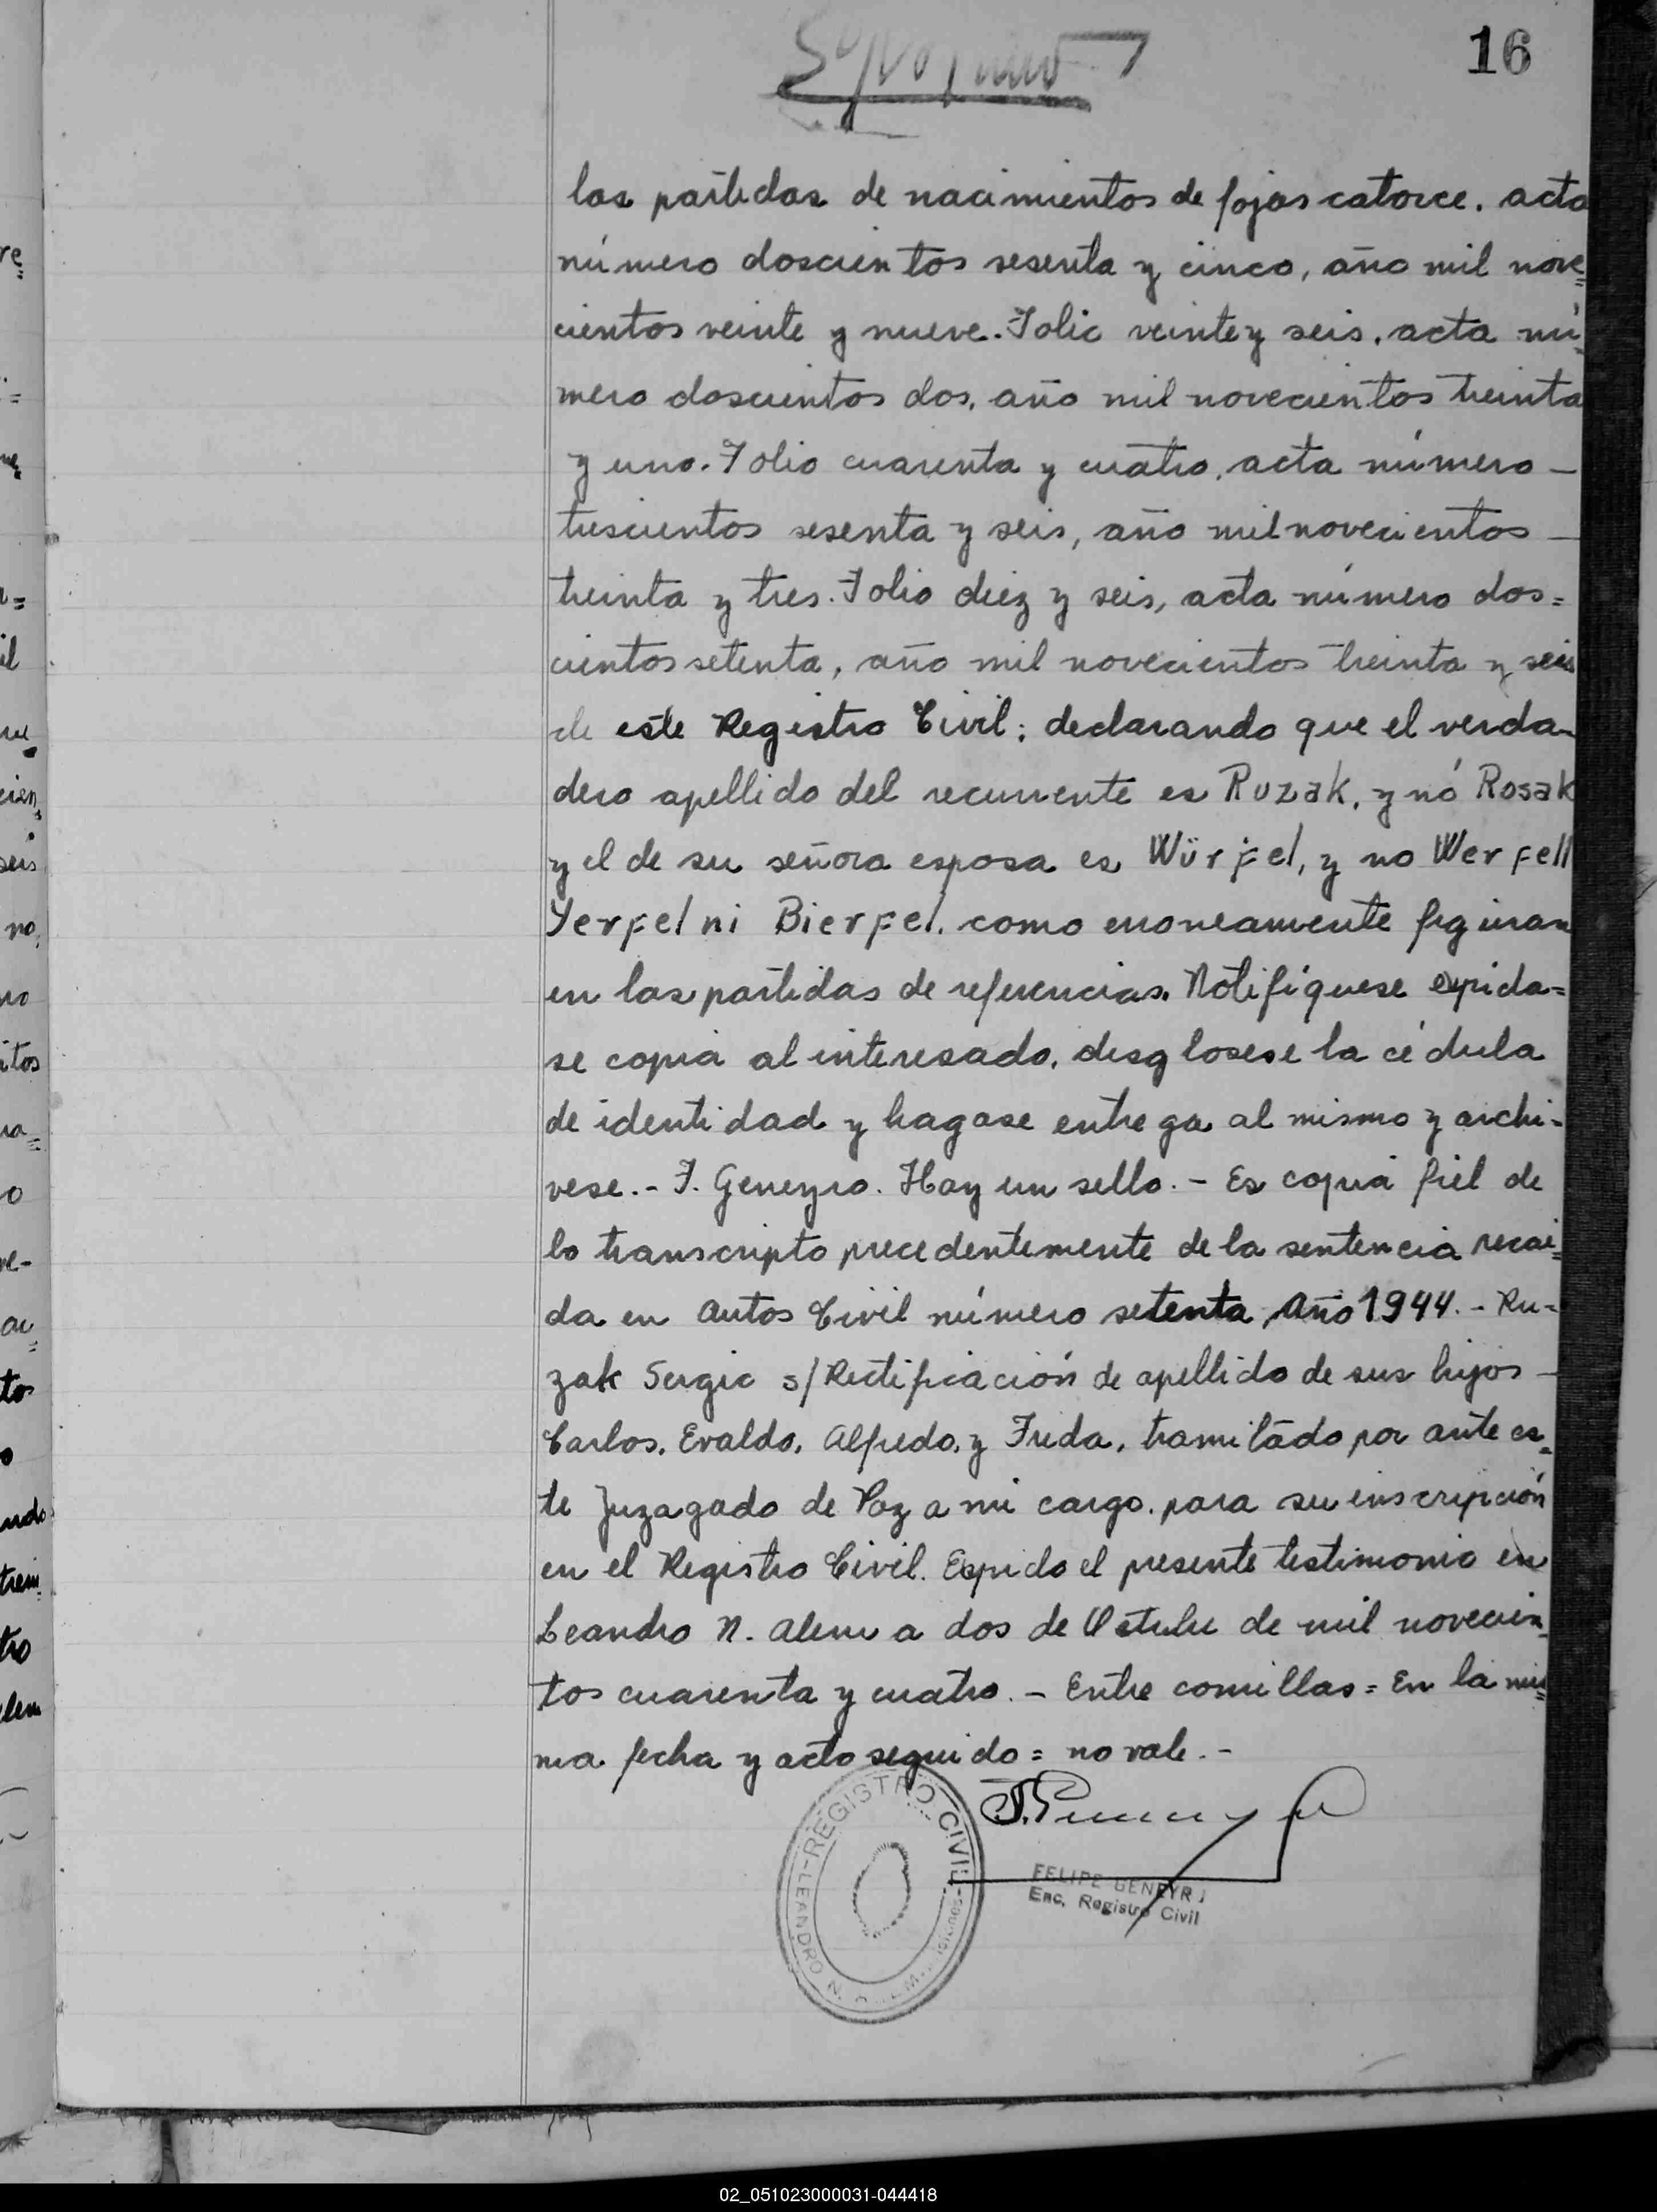 16
las partidas de nacimientos de fojas catorce. acta
número doscientos sesenta y cinco, año mil nove=
cientos veinte y nueve. Folio veinte y seis, acta nú=
mero doscientos dos, año mil novecientos treinta
y uno. Folio cuarenta y cuatro, acta número —
trescientos sesenta y seis, año mil novecientos —
treinta y tres. Folio diez y seis, acta número dos=
cientos setenta, año mil novecientos treinta y seis
de este Registro Civil; declarando que el verda-
dero apellido del recurrente es Ruzak, y nó Rosak
y el de su señora esposa es Würfel, y no Werfell
Yerfel ni Bierfel. como erroneamente figuran
en las partidas de referencias. Notifiquese expida=
se copia al interesado, desglosese la cédula
de identidad y hagase entrega al mismo y archi-
vese. - F. Geneyro. Hay un sello. - Es copia fiel de
lo transcripto precedentemente de la sentencia recai=
da en Autos Civil número setenta Año 1944. - Ru-
zak Sergio s/ Rectificación de apellido de sus hijos —
Carlos, Evaldo, Alfredo, y Frida, tramitado por ante es=
te Juzagado de Paz a mi cargo. para su inscripción
en el Registro Civil. Expido el presente testimonio en
Leandro N. Alem a dos de Octubre de mil novecien=
tos cuarenta y cuatro. - Entre comillas = En la mis=
ma fecha y acto seguido = no vale. -
REGISTRO CIVIL
LEANDRO N.
FELIPE GENEYRO
Enc. Registro Civil
02_051023000031-044418